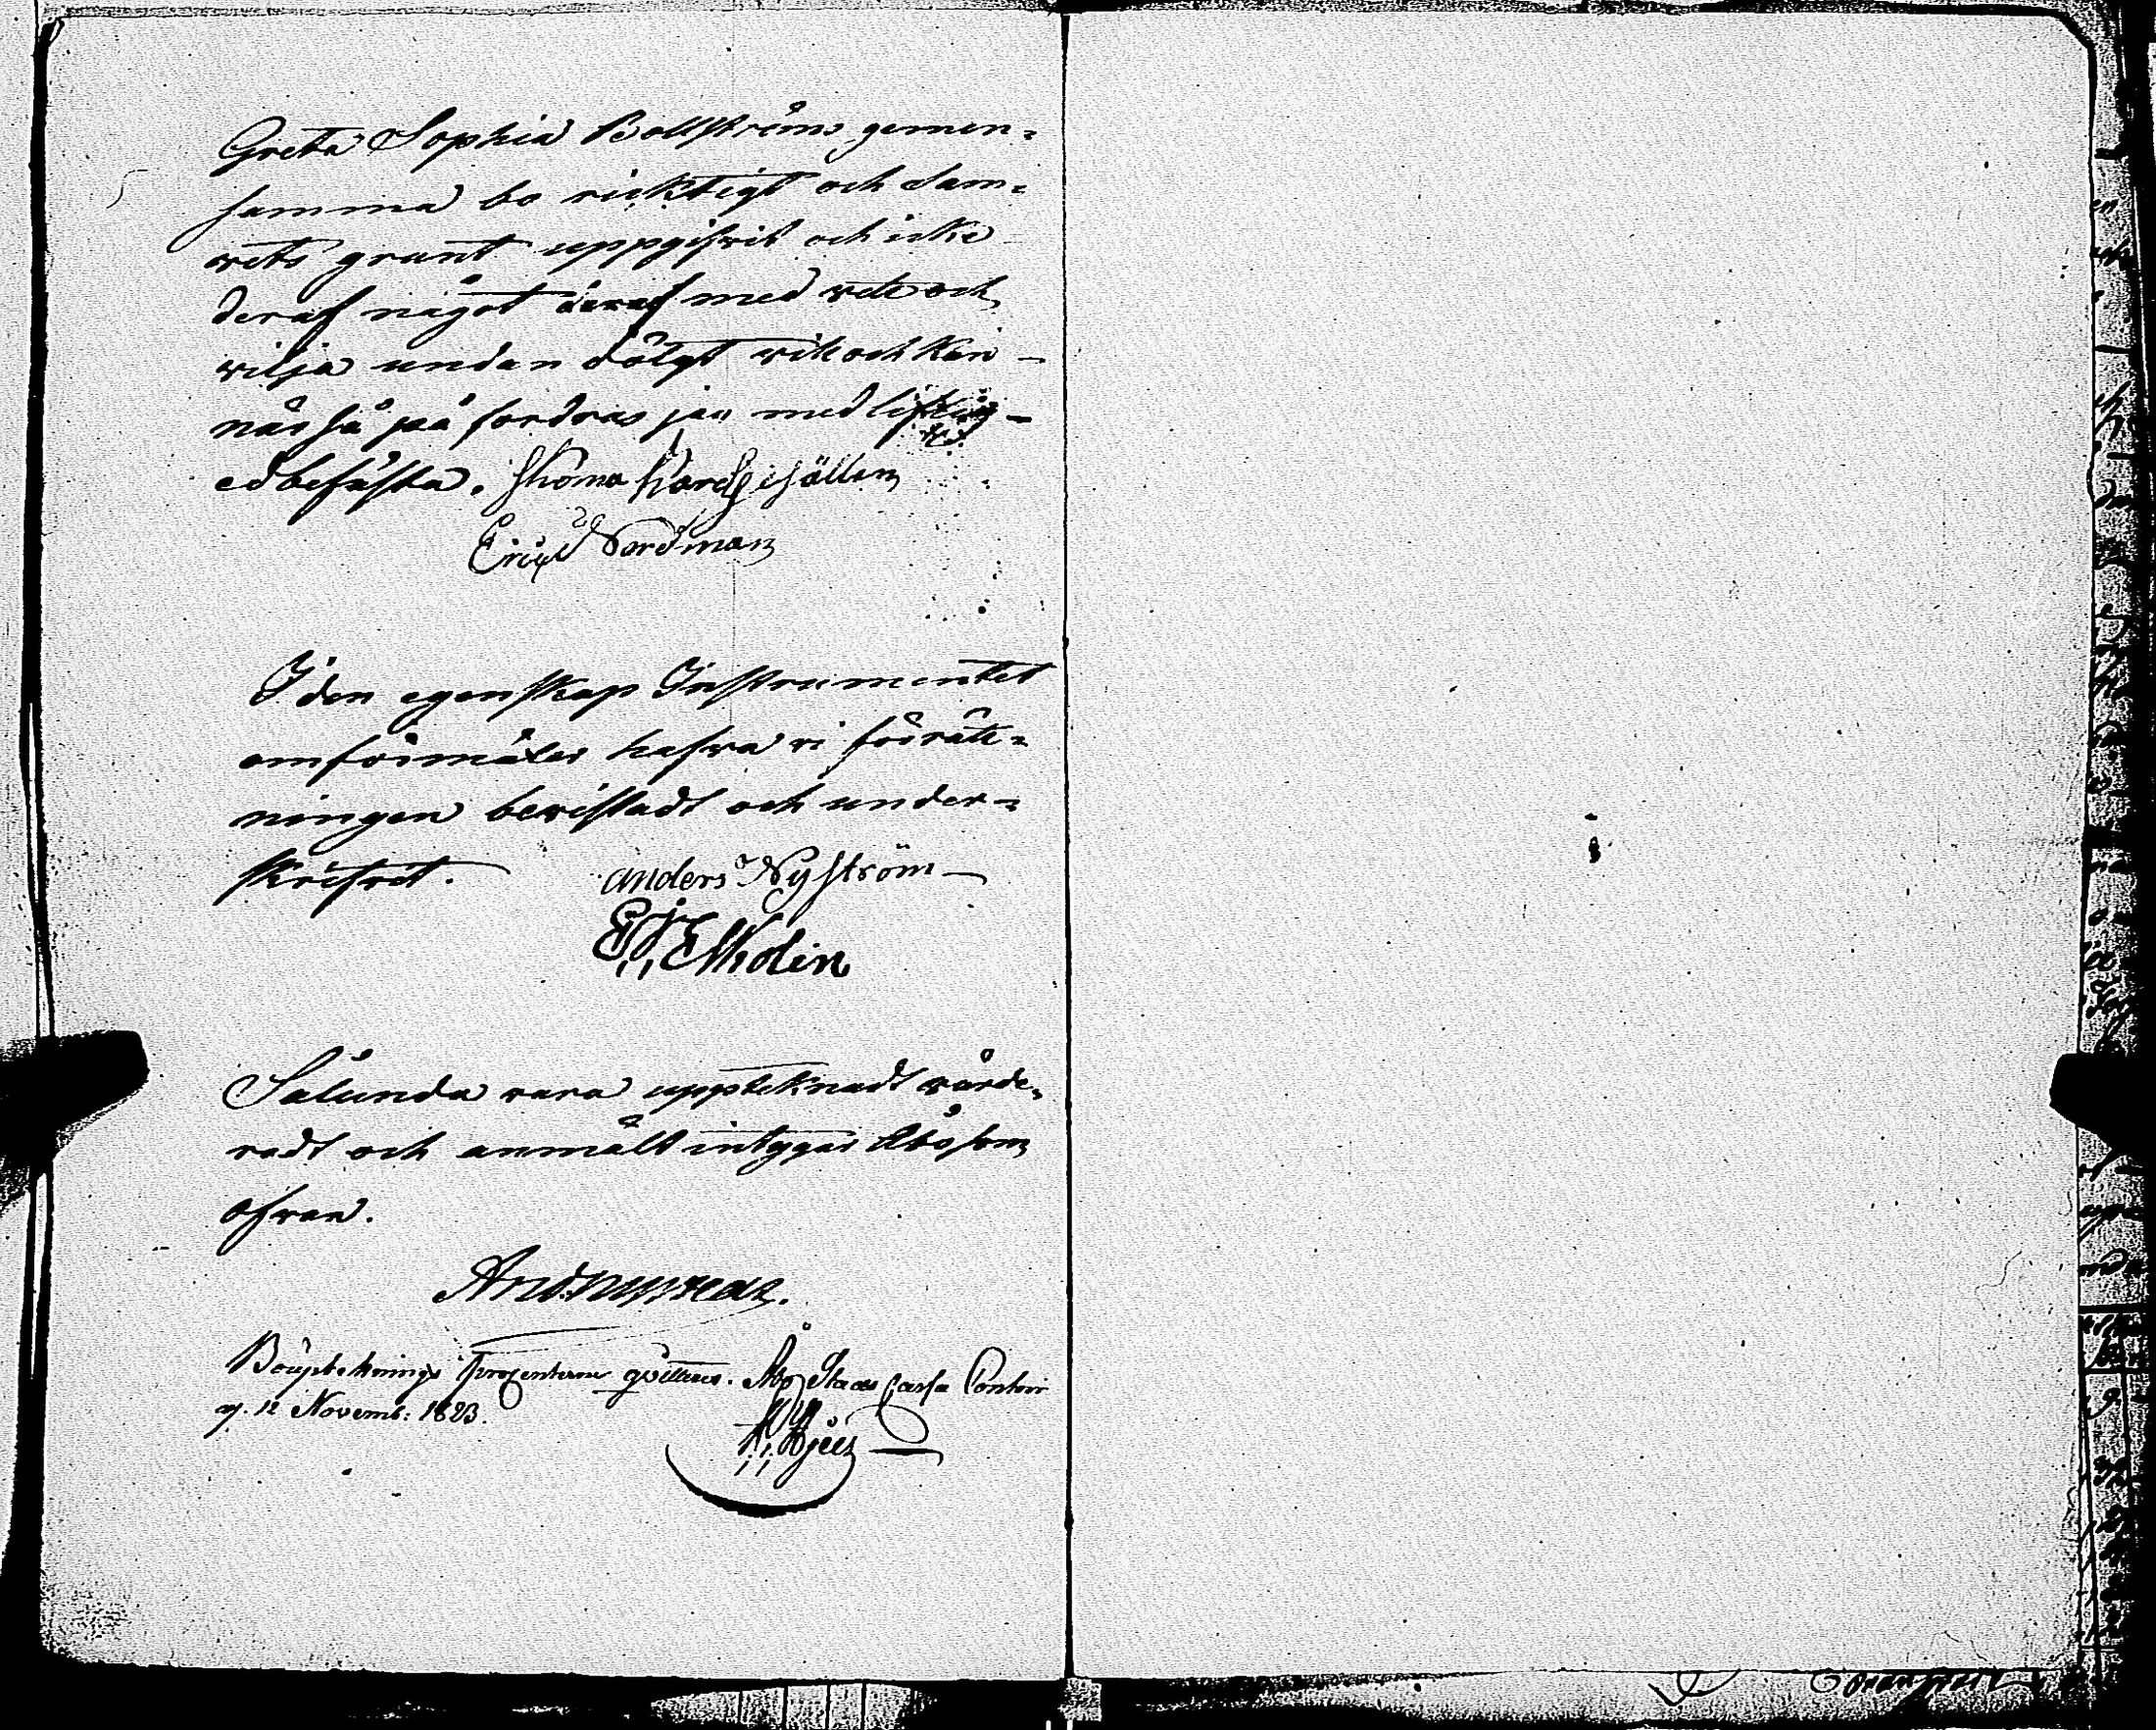 Greta Sophia Bollströms gemen=
samma bo ricktigt och sam=
vets grant uppgifvit och icke
deraf något deraf med vete och
vilja undan dölgt vill och kan
når så på fordras jan med liflig
ed befästa. Skomakaregesällen
Eric Nordman
I den egenskap Instrumentet
omförmäler hafva vi förrätt=
ningen bevistadt och under=
skrifvit. anders Nyström
Ekholin
Sålunda vara uppteknadt värde=
radt och anmält intygar Åbo som
ofvan.
Bouptekningsprocenterne qvitteras. Åbo Stads Cassa Contoir
d. 12 Novemb: 1823.